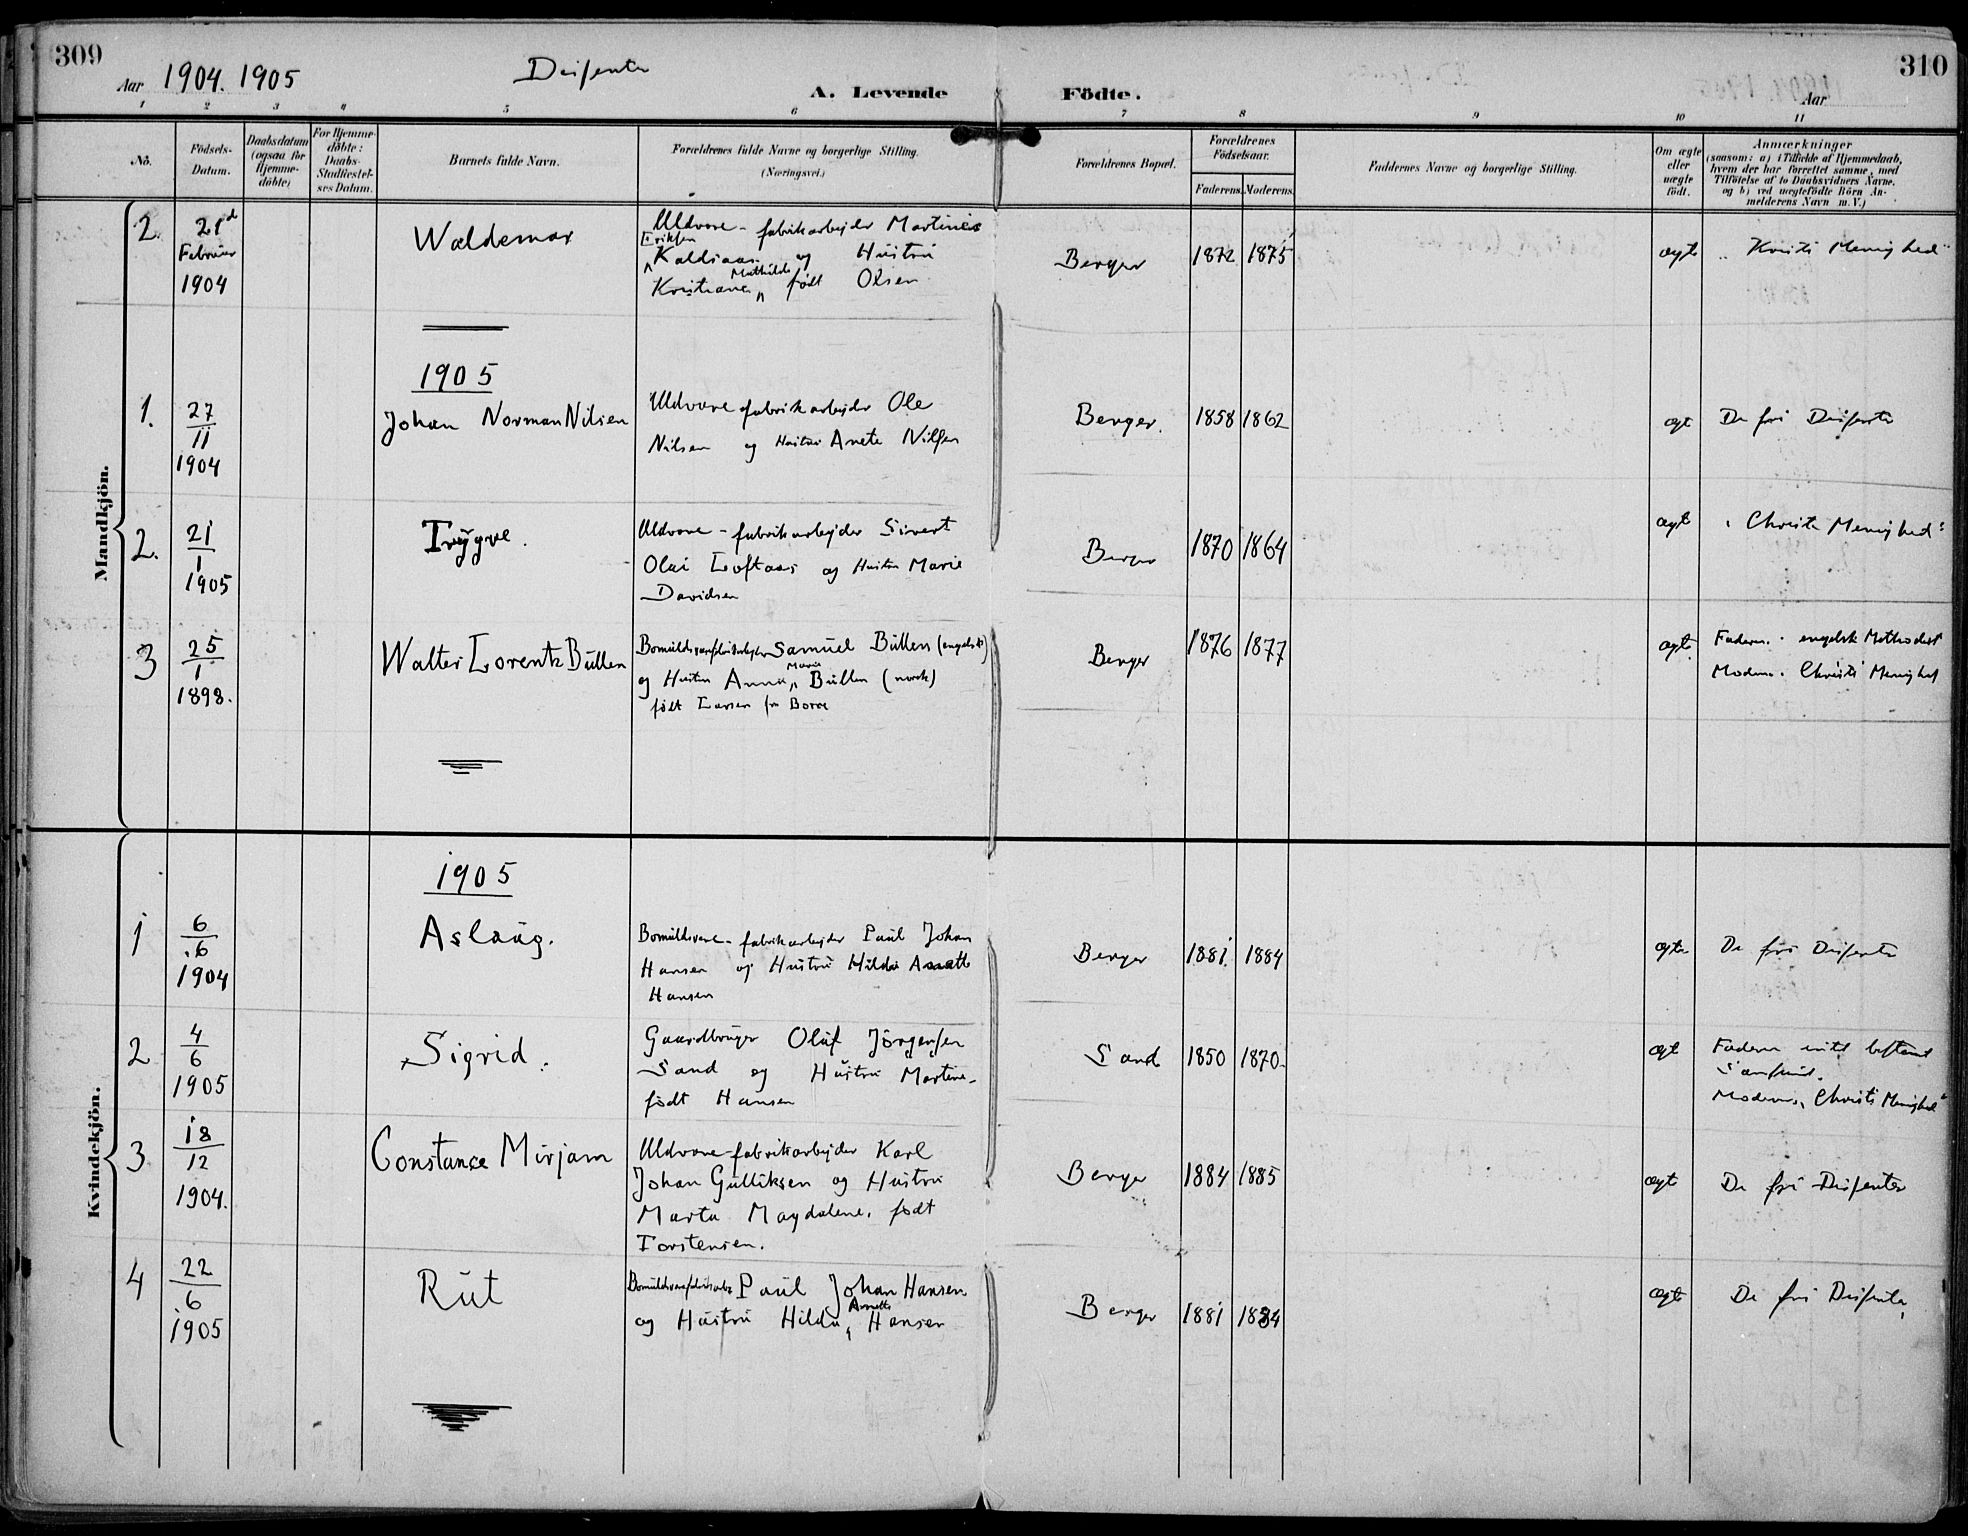 309
Aar 1904. 1905
Disenter
A. Levende Födte.
310
Aar
1 2 3 4 5 6 7 8 9 10 11
No.
Födsels-
Datum.
Daabsdatum
(ogsaa for
Hjemme-
döbte)
For Hjemme-
döbte:
Daabs-
Stadfæstel-
ses Datum.
Barnets fulde Navn.
Forældrenes fulde Navne og borgerlige Stilling.
(Næringsvei.)
Forældrenes Bopæl.
Forældrenes
Födselsaar.
Faderens. Moderens.
Faddernes Navne og borgerlige Stilling.
Om ægte
eller
uægte
födt.
Anmærkninger
(saasom: a) i Tilfælde af Hjemmedaab,
hvem der har forrettet samme, med
Tilföielse af to Daabsvidners Navne,
og b) ved uægtefödte Börn An-
melderens Navn m. V.)
Mandkjön.
2
21d
Februar
1904
Waldemar
Uldvare-fabrikarbejder Martinius
Eriksen
Kaldsaas og Hustru
Mathilde
Kristiane født Olsen
Berger
1872 1875
ægte
„Kristi Menighed"
1905
1.
27
11
1904
Johan Norman Nilsen
Uldvarefabrikarbejder Ole
Nilsen og Hustru Anete Nilsen
Berger.
1858 1862
ægt
De fri Disenter
2.
21
1
1905
Trygve.
Uldvare-fabrikarbejder Sivert
Olai Loftaas og Hustru Marie
Davidsen
Berger
1870 1864
ægte
„Christi Menighed"
3
25
1
1898.
Walter Lorentz Bullen
Bomuldsvarefabrikarbejder Samuel Bullen (engelsk)
Marie
og Hustru Anna Bullen (norsk)
født Larsen fra Borre
Berger
1876 1877
ægte
Faderen: engelsk Methodist
Moderen: Christi Menighed
Kvindekjön.
1905
1
6
6
1904
Aslaug.
Bomuldsvare-fabrikarbejder Paul Johan
Hansen og Hustru Hilda Anette
Hansen
Berger
1881. 1884
ægte
De fri Disenter
2
4
6
1905
Sigrid.
Gaardbruger Oluf Jörgensen
Sand og Hustru Martine
født Hansen
Sand
1850 1870.
ægt
Faderen intet bestemt
Samfund.
Moderen „Christi Menighed"
3
18
12
1904.
Constance Mirjam
Uldvare-fabrikarbejder Karl
Johan Gulliksen og Hustru
Marta Magdalene, født
Torstensen.
Berger
1884 1885
ægte
De fri Disenter
4
22
6
1905
Rut
Bomuldsvarefabrikarb. Paul Johan Hansen
Anette
og Hustru Hilda Hansen
Berger
1881 1884
ægte
De fri Disenter